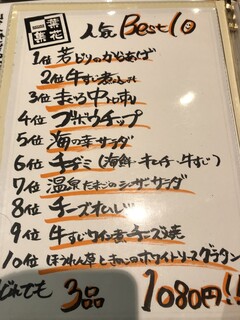 一葉花葉 人気Best10
1位 若どりのからあげ
2位 牛すじ煮
3位 まぐろ中トロ刺
4位 ゴボウチップ
5位 海の幸サラダ
6位 チヂミ(海鮮・キムチ・牛すじ)
7位 温泉たまごのシーザーサラダ
8位 チーズ
9位 牛すじワイン煮チーズ焼
10位 ほうれん草ときのこのホワイトソースグラタン
どれでも 3品 1080円!!